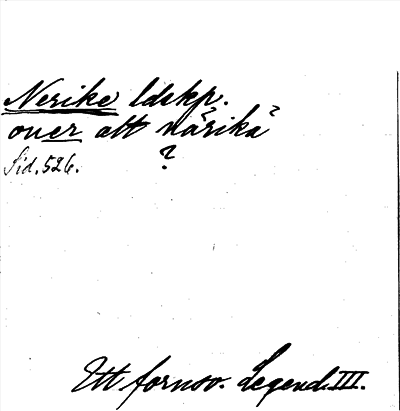 Nerike ldskp.
ouer att närikä?
Sid. 526. ?
Ett fornsv. Legend. III.